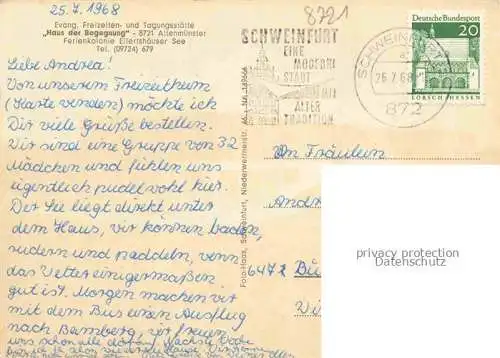 25.7.1968
8721
Evang. Freizeiten- und Tagungsstätte
„Haus der Begegnung" - 8721 Altenmünster
Ferienkolonie Ellertshäuser See
Tel. (09724) 679
SCHWEINFURT
EINE
MODERNE
STADT
MIT
ALTER
TRADITION
SCHWEINFURT
26.7.68
872
Deutsche Bundespost
20
LORSCH/HESSEN
Liebe Andrea!
Von unserem Freizeitheim
(Karte wenden) möchte ich
Dir viele Grüße bestellen.
Wir sind eine Gruppe von 32
Mädchen und fühlen uns
eigentlich pudelwohl hier.
Der See liegt direkt unter
dem Haus, wir können baden,
rudern und paddeln, wenn
das Wetter einigermaßen
gut ist. Morgen machen wir
mit dem Bus einen Ausflug
nach Bamberg, wir freuen
uns schon alle darauf. Nächste Woche
bin ich ja schon wieder zu Hause.
Foto-Haas, Schweinfurt, Niederwerrnerstr.
An Fräulein
Andr
6472
Wi
privacy protection
Datenschutz